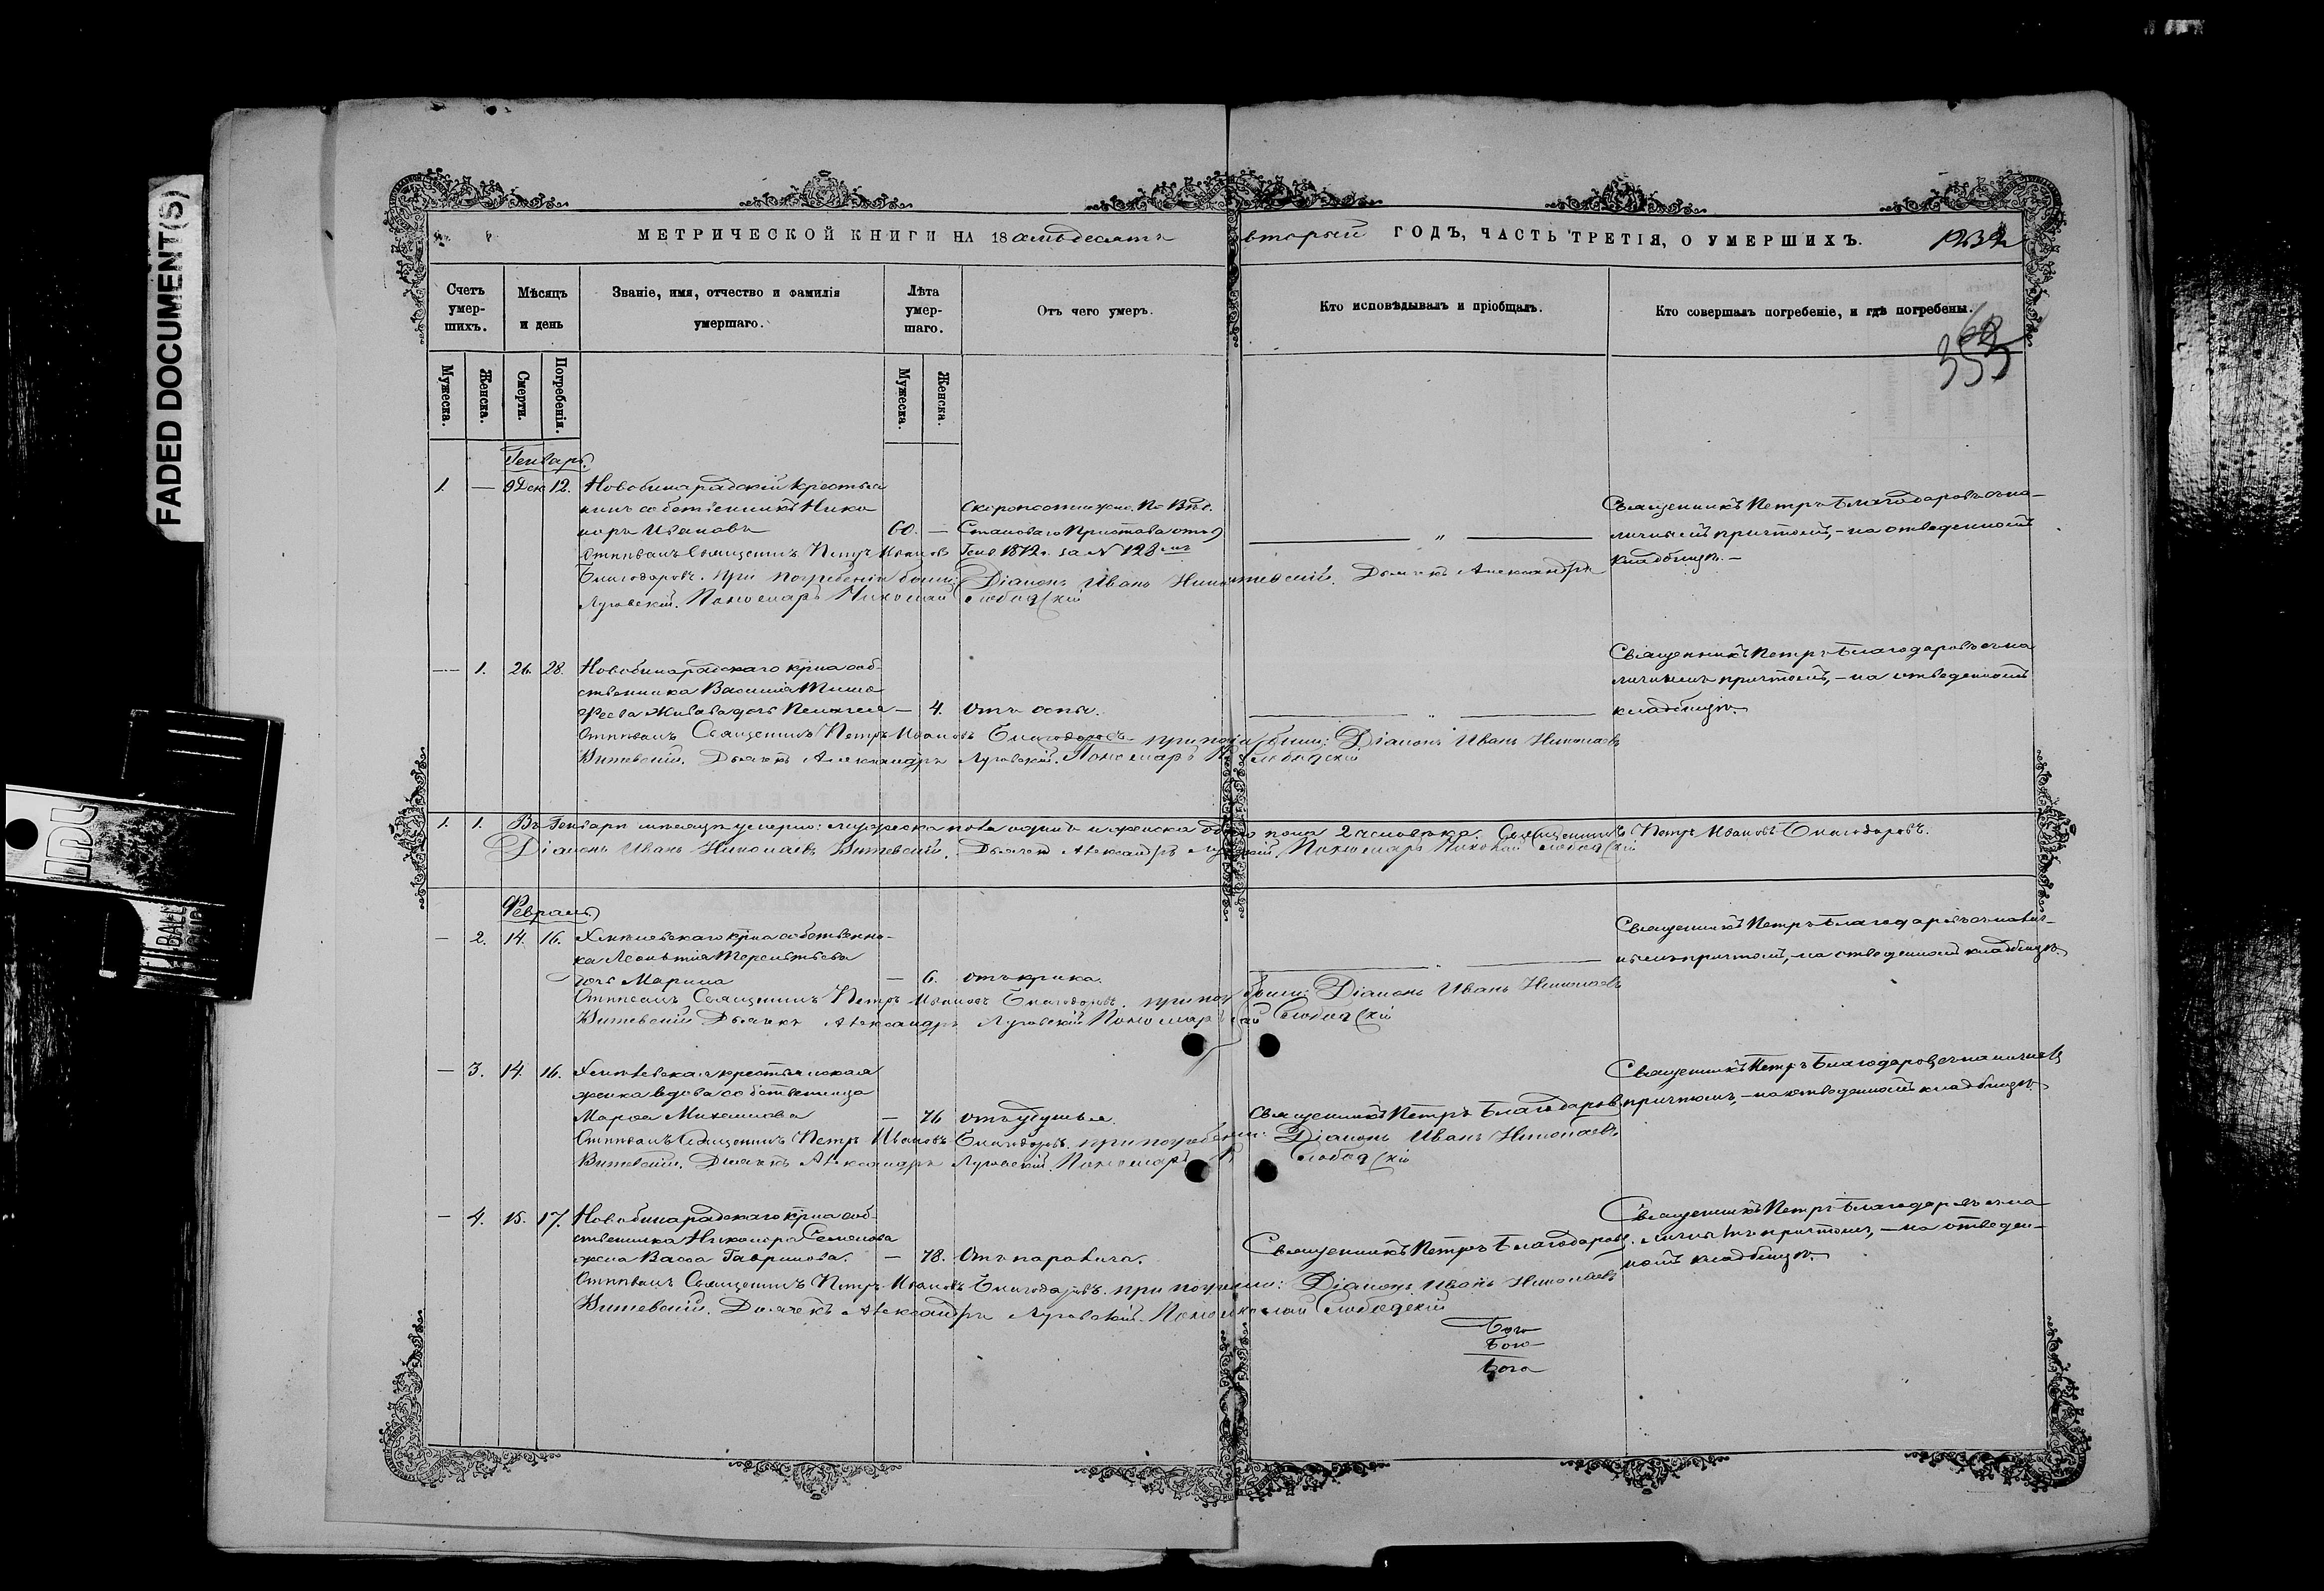 FADED DOCUMENT(S)
МЕТРИЧЕСКОЙ КНИГИ НА 18 семьдесятъ второй ГОДЪ, ЧАСТЬ ТРЕТІЯ, О УМЕРШИХЪ.
353
Счетъ умер-шихъ.
Мѣсяцъ и день
Званіе, имя, отчество и фамилія умершаго.
Лѣта умер-шаго.
Отъ чего умеръ.
Кто исповѣдывалъ и пріобщалъ.
Кто совершалъ погребеніе, и гдѣ погребены.
Мужеска.
Женска.
Смерти.
Погребенія.
Мужеска.
Женска.
Генварь.
1. — 9 12. Новобинарадскій крестья
нинъ собственникъ Ника
норъ Ивановъ 60. —
Скоропостижно.
Становаго Пристава отъ 9
Генв. 1872 г. за N 128
— „ —
Священникъ Петръ Благодаровъ съ на-
личнымъ причтомъ, - на отведенномъ
кладбищѣ. -
Отпѣвалъ Священникъ Петръ Ивановъ
Благодаровъ. При погребеніи были: Діаконъ Иванъ Дьячекъ Александръ
Луговскій. Пономарь Николай Слободскій
— 1. 26. 28. Новобинарадскаго кр-на соб-
ственника Василія Тимо
феева дочь Пелагея — 4. Отъ оспы.
— „ —
Священникъ Петръ Благодаровъ съ на
личнымъ причтомъ, - на отведенномъ
кладбищѣ.
Отпѣвалъ Священникъ Петръ Ивановъ Благодаровъ. при были: Діаконъ Иванъ Николаевъ
Витевскій. Дьячекъ Александръ Луговскій. Пономарь Слободскій
1. 1. Въ Генварѣ мѣсяцѣ умерло: мужеска пола одинъ и женска одного пола 2 человѣка. Священникъ Петръ Ивановъ Благодаровъ.
Діаконъ Иванъ Николаевъ Витевскій. Дьячекъ Александръ Луговскій. Пономарь Николай Слободскій
Февраль
— 2. 14. 16. кр-на собственни-
ка Леонтія Терентьева
дочь Марина — 6. отъ крика.
— „ —
Священникъ Петръ Благодаровъ съ налич-
нымъ причтомъ, - на отведенномъ кладбищѣ.
Отпѣвалъ Священникъ Петръ Ивановъ Благодаровъ. при были: Діаконъ Иванъ Николаевъ
Витевскій Дьячекъ Александръ Луговскій Пономарь Слободскій
— 3. 14. 16. крестьянская
женка вдова собственница
Марѳа Михайлова — 76 отъ удушья.
Священникъ Петръ Благодаровъ
Священникъ Петръ Благодаровъ съ наличнымъ
причтомъ, - на отведенномъ кладбищѣ.
Отпѣвалъ Священникъ Петръ Ивановъ Благодаровъ. при погребеніи: Діаконъ Иванъ Николаевъ
Витевскій. Дьячекъ Александръ Луговскій. Пономарь Слободскій
— 4. 15. 17. Новобинарадскаго кр-на соб-
ственника Никанора Семенова
жена Васса Гаврилова. — 78. Отъ паралича.
Священникъ Петръ Благодаровъ.
Священникъ Петръ Благодаровъ съ на
личнымъ причтомъ, - на отведен-
номъ кладбищѣ.
Отпѣвалъ Священникъ Петръ Ивановъ Благодаровъ. при были: Діаконъ Иванъ Николаевъ
Витевскій. Дьячекъ Александръ Луговскій. Слободскій